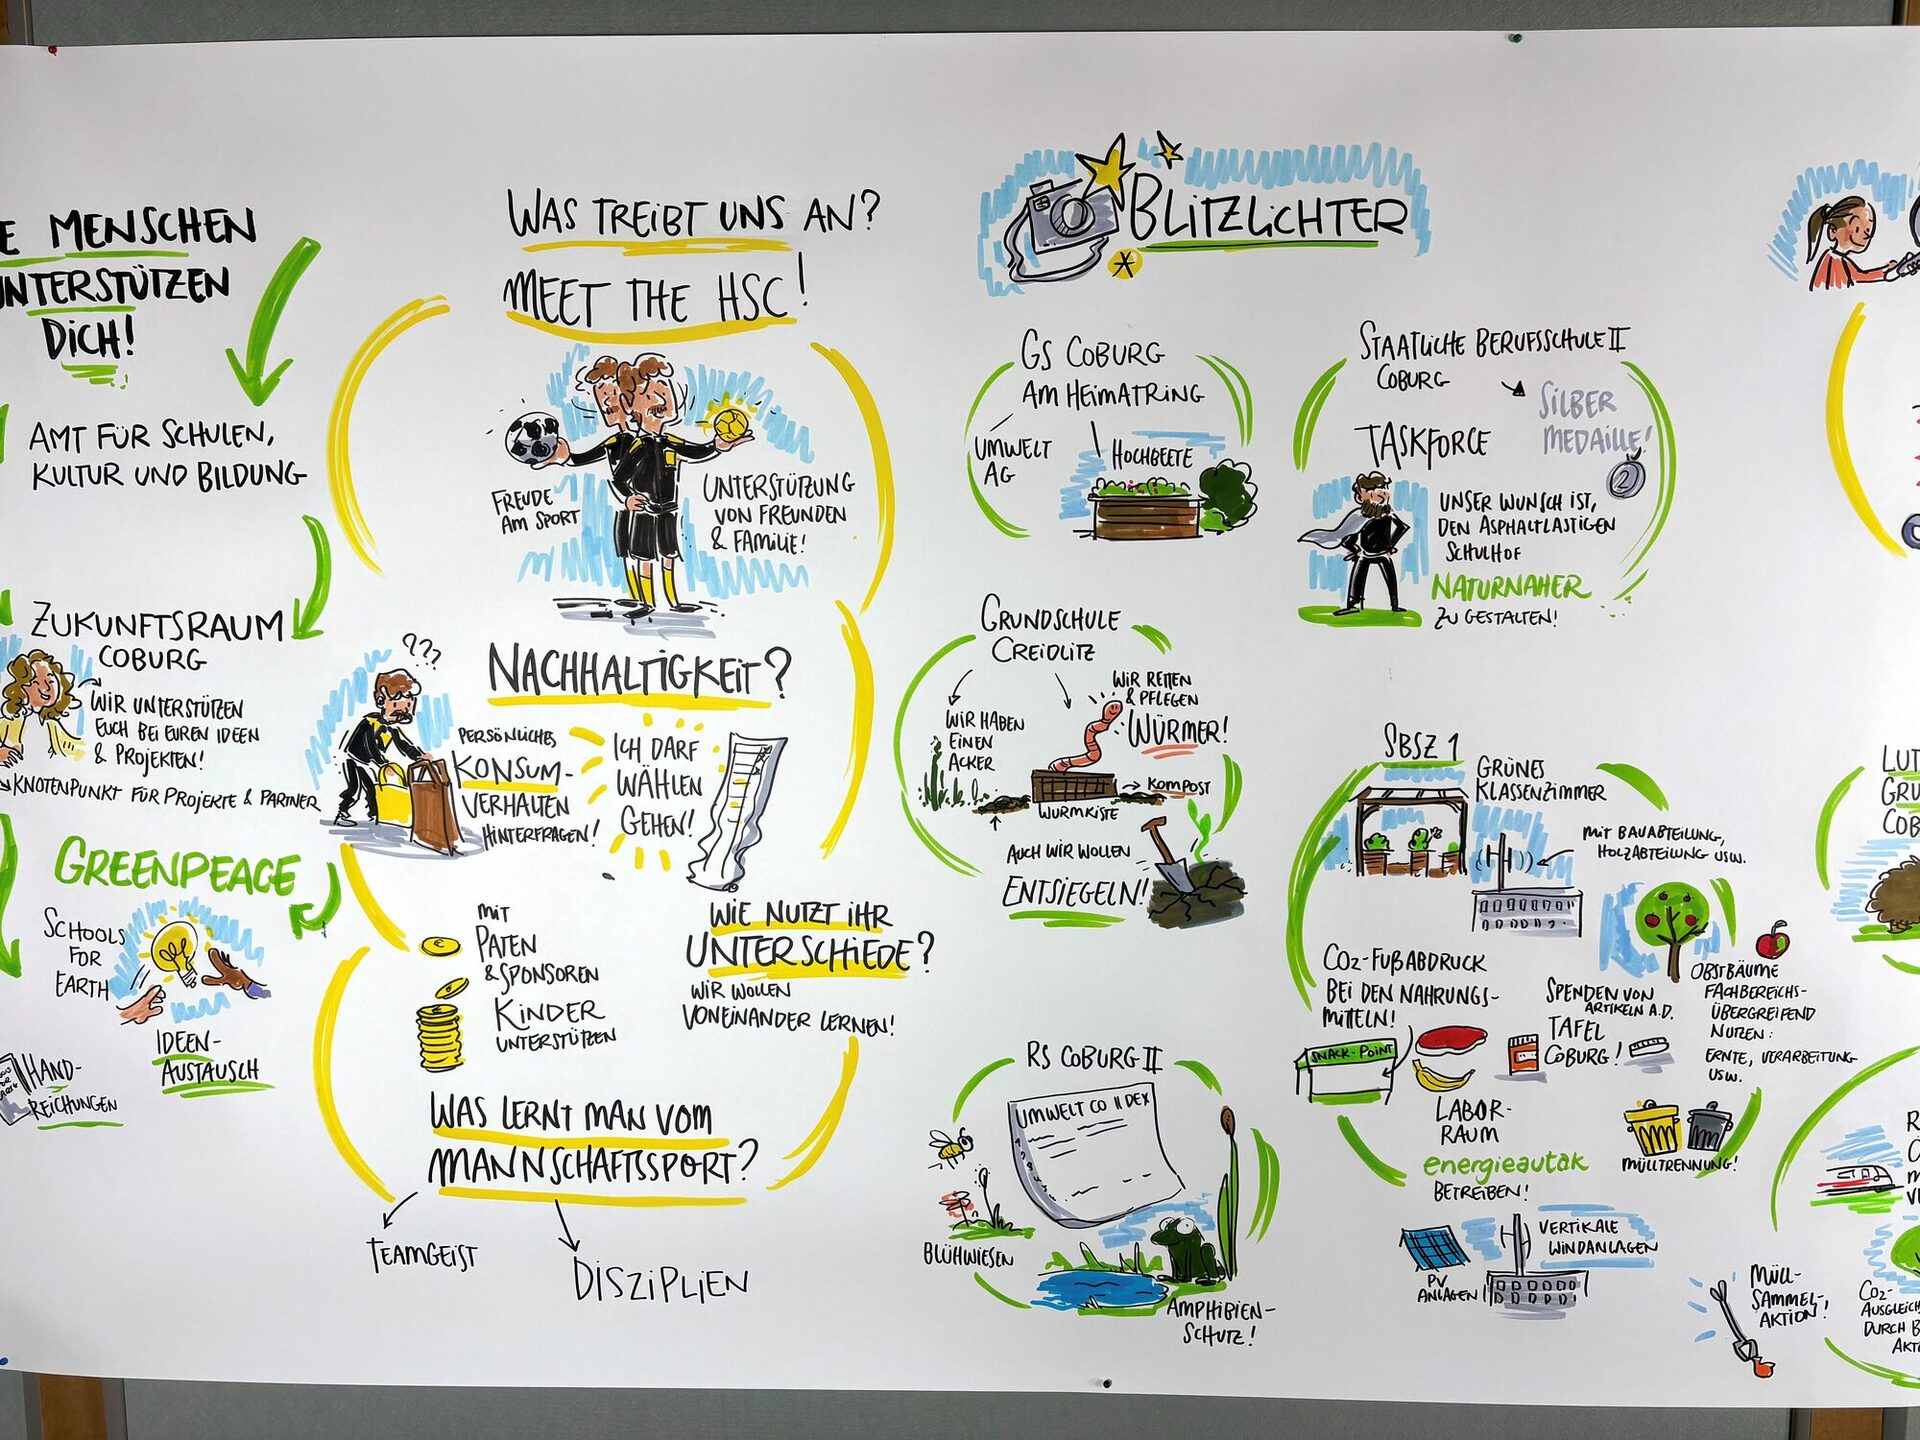 MENSCHEN
UNTERSTÜTZEN
DICH!
AMT FÜR SCHULEN,
KULTUR UND BILDUNG
ZUKUNFTSRAUM
COBURG
WIR UNTERSTÜTZEN
EUCH BEI EUREN IDEEN
& PROJEKTEN!
KNOTENPUNKT FÜR PROJEKTE & PARTNER
GREENPEACE
SCHOOLS
FOR
EARTH
IDEEN-
AUSTAUSCH
HAND-
REICHUNGEN
WAS TREIBT UNS AN?
MEET THE HSC!
FREUDE
AM SPORT
UNTERSTÜTZUNG
VON FREUNDEN
& FAMILIE!
???
NACHHALTIGKEIT?
PERSÖNLICHES
KONSUM-
VERHALTEN
HINTERFRAGEN!
ICH DARF
WÄHLEN
GEHEN!
MIT
PATEN
& SPONSOREN
KINDER
UNTERSTÜTZEN
WIE NUTZT IHR
UNTERSCHIEDE?
WIR WOLLEN
VONEINANDER LERNEN!
WAS LERNT MAN VOM
MANNSCHAFTSSPORT?
TEAMGEIST
DISZIPLIEN
BLITZLICHTER
GS COBURG
AM HEIMATRING
UMWELT
AG
HOCHBEETE
GRUNDSCHULE
CREIDLITZ
WIR HABEN
EINEN
ACKER
WIR RETTEN
& PFLEGEN
WÜRMER!
KOMPOST
WURMKISTE
AUCH WIR WOLLEN
ENTSIEGELN!
RS COBURG II
UMWELT CO II DEX
BLÜHWIESEN
AMPHIBIEN-
SCHUTZ!
STAATLICHE BERUFSSCHULE II
COBURG
SILBER
MEDAILLE!
2
TASKFORCE
UNSER WUNSCH IST,
DEN ASPHALTLASTIGEN
SCHULHOF
NATURNAHER
ZU GESTALTEN!
SBSZ 1
GRÜNES
KLASSENZIMMER
MIT BAUABTEILUNG,
HOLZABTEILUNG USW.
CO2-FUẞABDRUCK
BEI DEN NAHRUNGS-
MITTELN!
SNACK-POINT
SPENDEN VON
ARTIKELN A.D.
TAFEL
COBURG!
OBSTBÄUME
FACHBEREICHS-
ÜBERGREIFEND
NUTZEN:
ERNTE, VERARBEITUNG
USW.
LABOR-
RAUM
energieautak
BETREIBEN!
MÜLLTRENNUNG!
PV
ANLAGEN
VERTIKALE
WINDANLAGEN
MÜLL-
SAMMEL-
AKTION!
CO2-
AUSGLEICH
DURCH